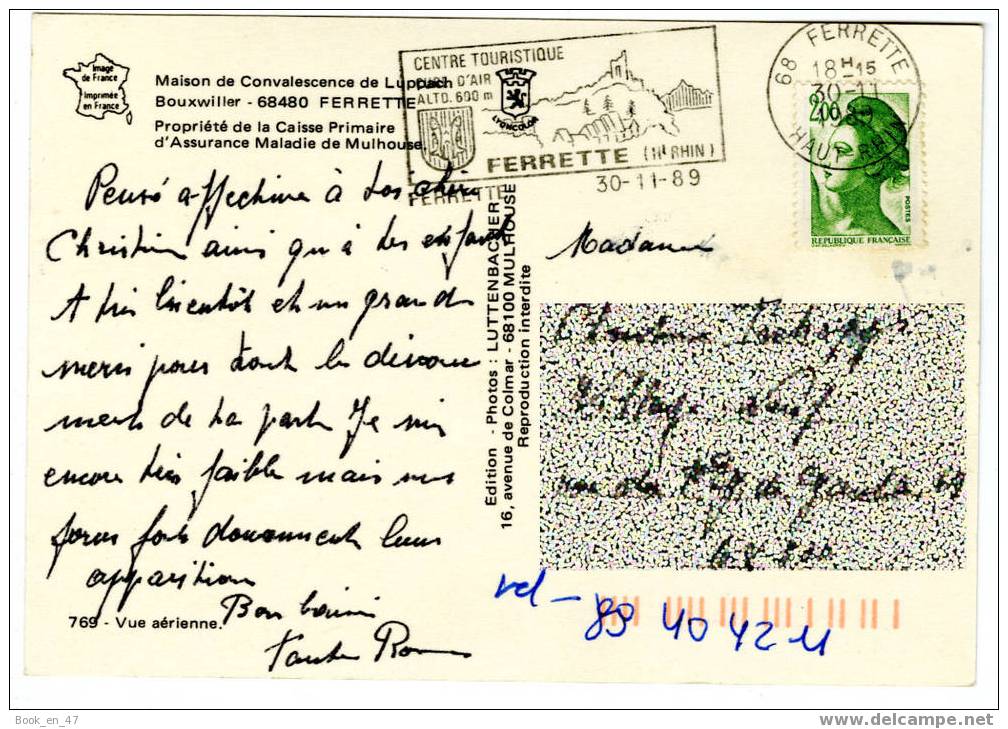 Image
de France
Imprimée
en France
Maison de Convalescence de Luppach
Bouxwiller - 68480 FERRETTE
Propriété de la Caisse Primaire
d'Assurance Maladie de Mulhouse.
CENTRE TOURISTIQUE
CURE D'AIR
ALTD. 600 m
LYONCOLOR
FERRETTE (Ht RHIN)
FERRETTE
30-11-89
68 FERRETTE
18H15
30-11
HAUT RHIN
2,00
POSTES
REPUBLIQUE FRANÇAISE
Pensé affective à tes chéris
Christian ainsi qu'à tes enfants
A très bientôt et un grand
merci pour tout le dévoue
ment de ta part Je suis
encore très faible mais mes
forces font doucement leurs
apparition
Bons baisers
Tante
769 - Vue aérienne.
Edition - Photos : LUTTENBACHER
16, avenue de Colmar - 68100 MULHOUSE
Reproduction interdite
Madame
rue du
89 40 42 11
Book_en_47
www.delcampe.net